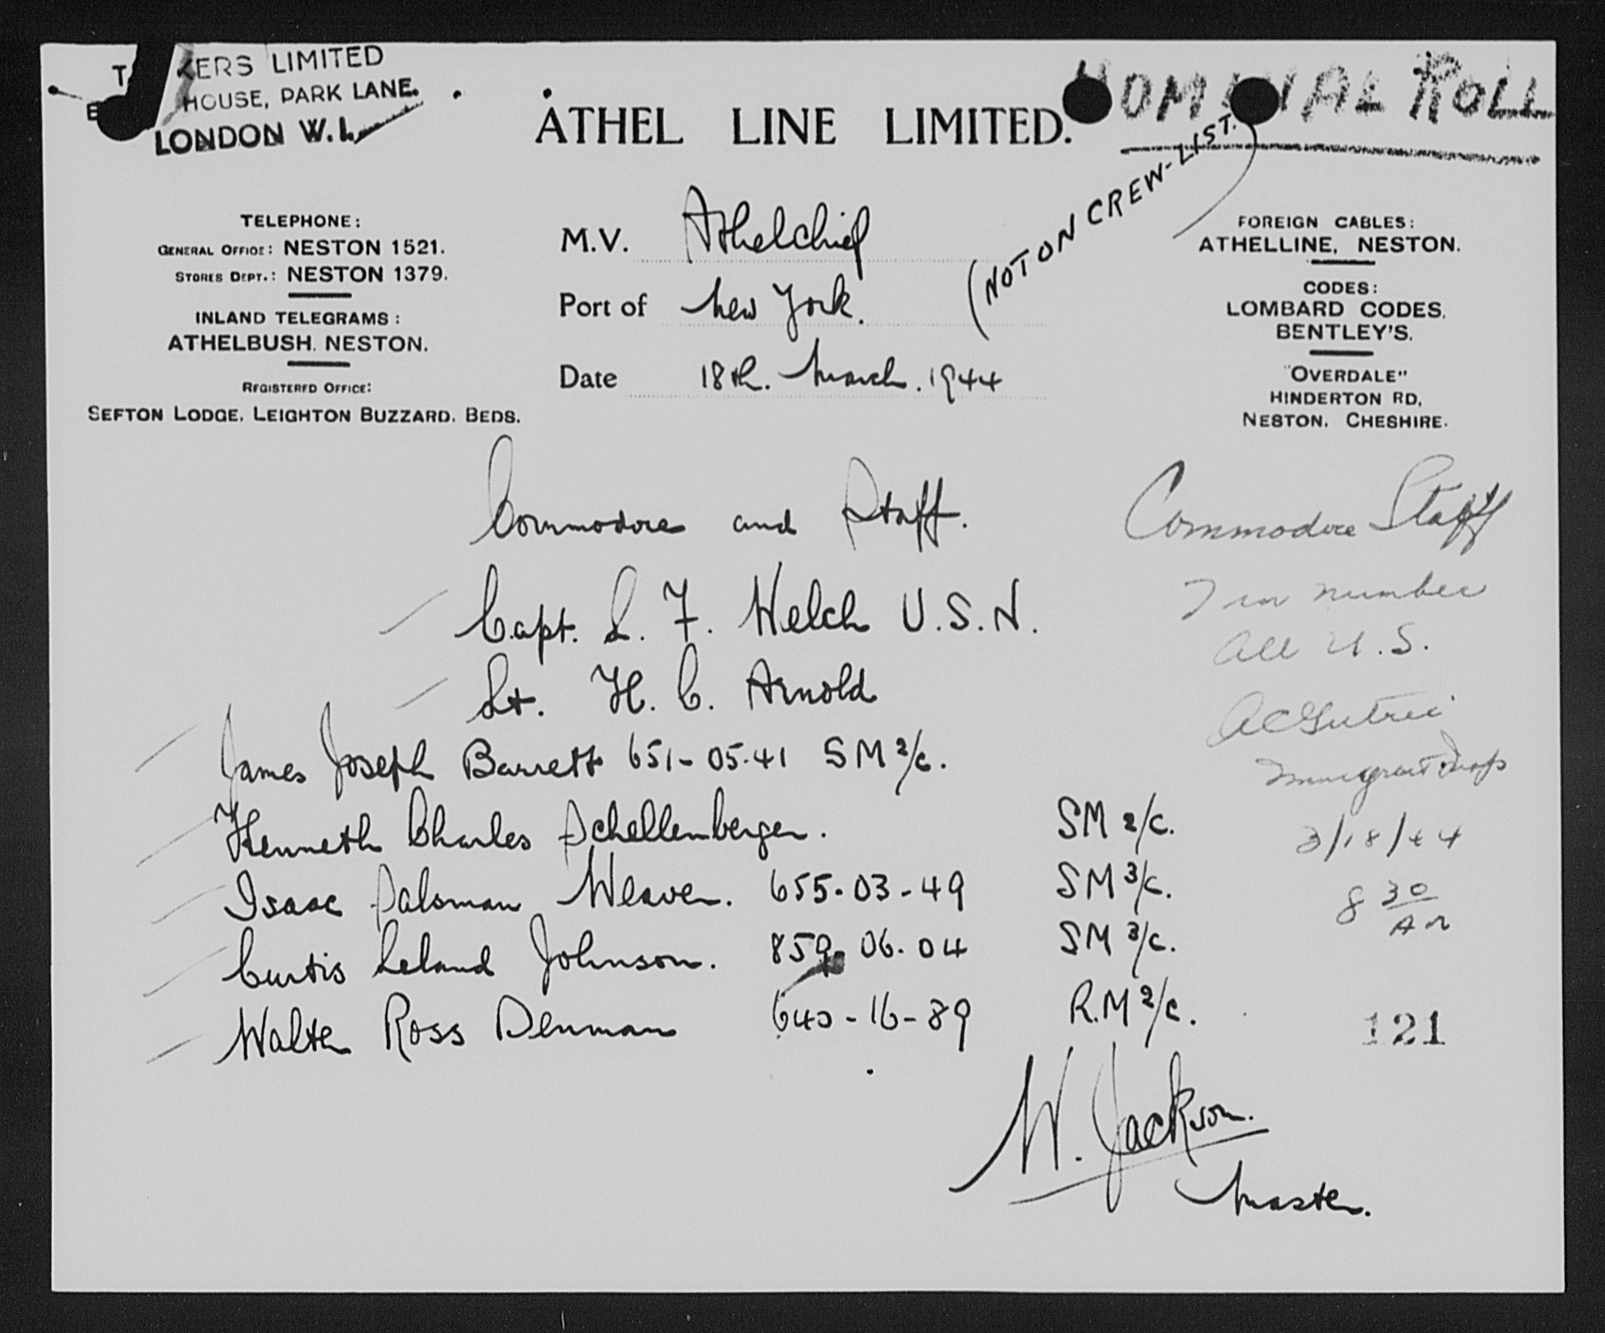 KERS LIMITED
HOUSE, PARK LANE.
LONDON W.1.
ATHEL LINE LIMITED.
NOMINAL ROLL
(NOT ON CREW-LIST.
TELEPHONE:
GENERAL OFFICE: NESTON 1521.
STORES DEPT.: NESTON 1379.
INLAND TELEGRAMS:
ATHELBUSH. NESTON.
REGISTERED OFFICE:
SEFTON LODGE, LEIGHTON BUZZARD. BEDS.
M.V. Athelchief
Port of New York.
Date 18th. March. 1944
FOREIGN CABLES:
ATHELLINE, NESTON.
CODES:
LOMBARD CODES.
BENTLEY'S.
"OVERDALE"
HINDERTON RD,
NESTON, CHESHIRE.
Commodore and Staff.
Capt. L. F. Welch U.S.N.
Lt. H. C. Arnold
James Joseph Barrett 651-05-41 SM 2/c.
Kenneth Charles Schellenberger. SM 2/c.
Isaac Salsman Weaver. 655-03-49 SM 3/c.
Curtis Leland Johnson. 859-06-04 SM 3/c.
Walter Ross Denman 640-16-89 R.M 2/c.
W. Jackson.
Master.
Commodore Staff
7 in number
all U.S.
Immigrant Insp
3/18/44
8 30
AM
121